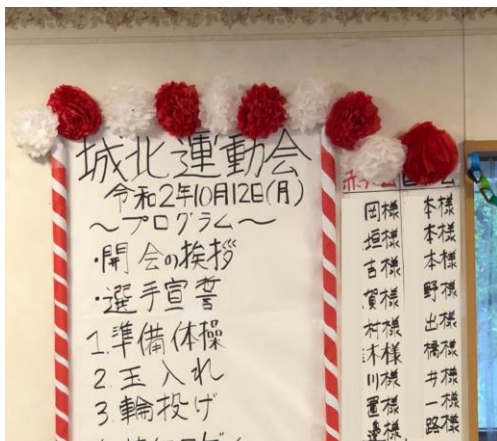 城北運動会
令和2年10月12日(月)
~プログラム~
・開会の挨拶
・選手宣誓
1.準備体操
2.玉入れ
3.輪投げ
岡様
垣様
吉様
賀様
村様
木様
川様
置様
本様
本様
本様
野様
出様
橋様
井様
一様
路様